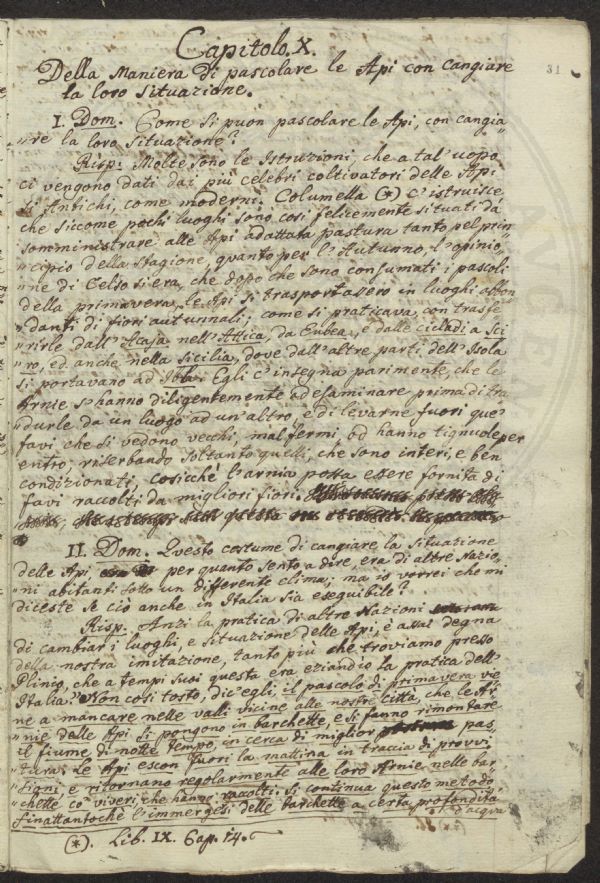 31
Capitolo. X.
Della Maniera di pascolare le Api con cangiare
la loro situazione.
I. Dom. Come si puon pascolare le Api, con cangia„
„re la loro situazione?
Risp: Molte sono le Istruzioni, che a tal'uopo
ci vengono dati dai più celebri coltivatori delle Api
sì Antichi, come moderni. Columella (*) c'istruisce
che siccome pochi luoghi sono così felicemente situati da
somministrare alle Api adattata pastura tanto pel prin„
„cipio della stagione, quanto per l'Autunno, l'opinio„
„ne di Celso si era, che dopo che sono consumati i pascoli
della primavera, le Api si trasportassero in luoghi abbon„
„danti di fiori autunnali; come si praticava, con trasfe„
„rirle dall'Acaja nell'Attica, da Eubea, e dalle cicladi a Sci„
„ro, ed anche nella Sicilia, dove dall'altre parti dell'Isola
si portavano ad Ibla. Egli c'insegna parimente, che le
Arnie s'hanno diligentemente ad esaminare prima di tra„
„durle da un luogo ad un'altro, e di levarne fuori que'
favi che si vedono vecchi, mal fermi, od hanno tignuole per
entro, riserbando soltanto quelli, che sono interi, e ben
condizionati, cosicchè l'arnia possa essere fornita di
favi raccolti da migliori fiori.
II. Dom. Questo costume di cangiare la situazione
delle Api per quanto sento a dire, era di altre Nazio„
„ni abitanti sotto un differente clima; ma io vorrei che mi
diceste se ciò anche in Italia sia eseguibile?
Risp. Anzi la pratica di altre Nazioni
di cambiar i luoghi, e situazione delle Api, è assai degna
della nostra imitazione, tanto più che troviamo presso
Plinio, che a tempi suoi questa era eziandio la pratica dell'
Italia. „Non così tosto, dic'egli, il pascolo di primavera vie„
„ne a mancare nelle valli vicine alle nostre città, che le Ar„
„nie delle Api si pongono in barchette, e si fanno rimontare
„il fiume di notte tempo, in cerca di miglior pas„
„tura. Le Api escon fuori la mattina in traccia di provvi„
„sioni, e ritornano regolarmente alle loro Arnie, nelle bar„
„chette co' viveri, che hanno raccolti. Si continua questo metodo,
„finattantochè l'immerges: delle barchette a certa profondità
d'acqua
(*). Lib. IX. Cap. 14.